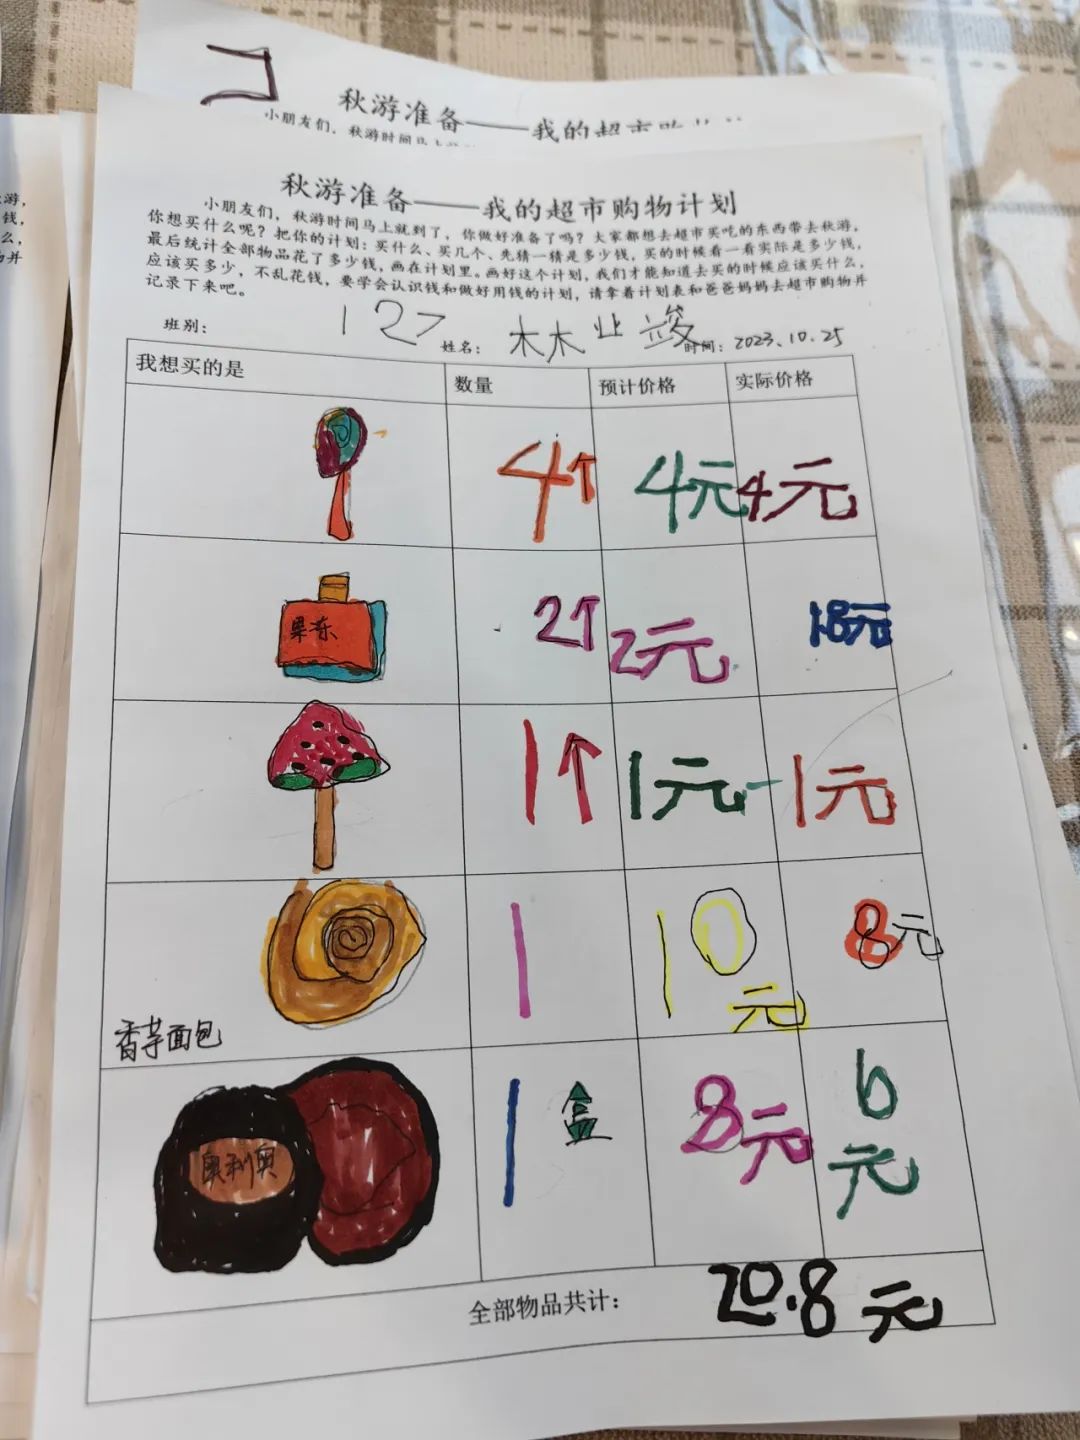 秋游准备——我的超市购物计划
小朋友们，秋游时间马上
秋游准备——我的超市购物计划
小朋友们，秋游时间马上就到了，你做好准备了吗？大家都想去超市买吃的东西带去秋游，
你想买什么呢？把你的计划：买什么、买几个、先猜一猜是多少钱，买的时候看一看实际是多少钱，
最后统计全部物品花了多少钱，画在计划里。画好这个计划，我们才能知道去买的时候应该买什么，
应该买多少，不乱花钱，要学会认识钱和做好用钱的计划，请拿着计划表和爸爸妈妈去超市购物并
记录下来吧。
班别： 127 姓名： 林业 时间：2023.10.25
我想买的是 数量 预计价格 实际价格
4个 4元 4元
果冻 2个 2元 1.8元
1个 1元 1元
香芋面包 1 10元 8元
奥利奥 1盒 8元 6元
全部物品共计： 20.8元